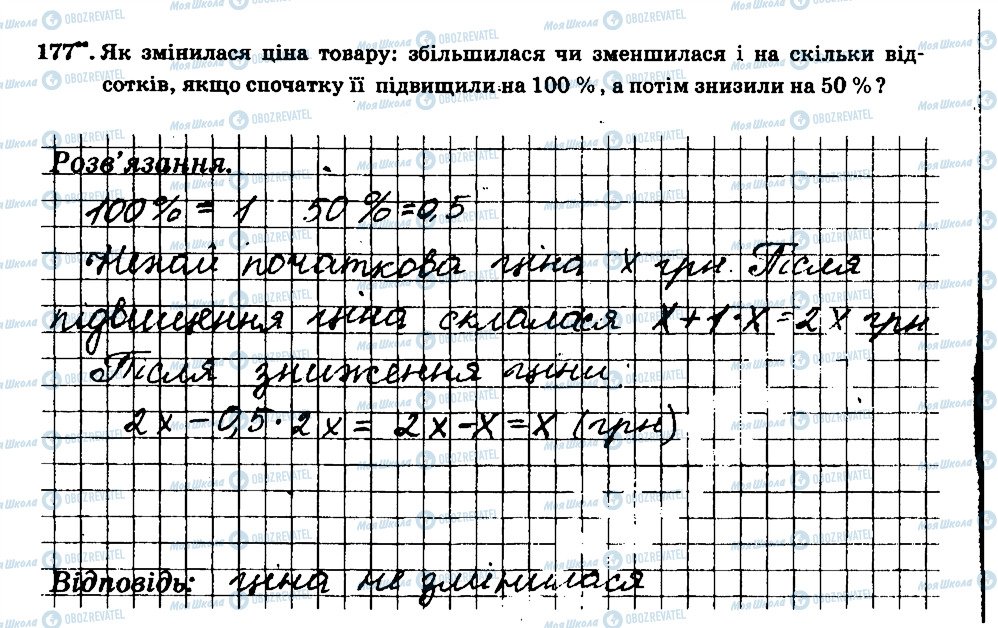 177**. Як змінилася ціна товару: збільшилася чи зменшилася і на скільки від-
сотків, якщо спочатку її підвищили на 100 %, а потім знизили на 50 % ?
Розв'язання.
100% = 1 50% = 0,5
Нехай початкова ціна x грн. Після
підвищення ціна склалася x + 1·x = 2x грн
Після зниження ціни:
2x – 0,5·2x = 2x – x = x (грн)
Відповідь: ціна не змінилася